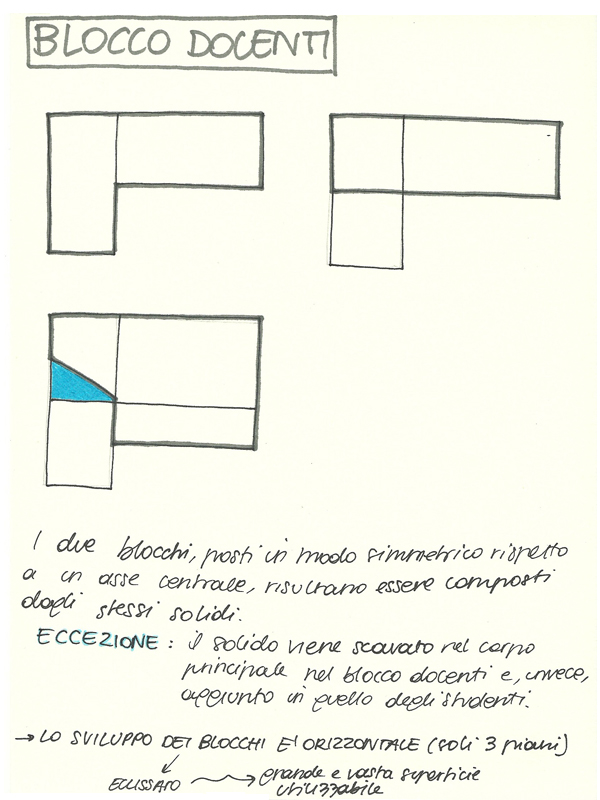 BLOCCO DOCENTI
I due blocchi, posti in modo simmetrico rispetto
a un asse centrale, risultano essere composti
dagli stessi solidi.
ECCEZIONE : il solido viene scavato nel corpo
principale nel blocco docenti e, invece,
aggiunto in quello degli studenti.
→ LO SVILUPPO DEI BLOCCHI E' ORIZZONTALE (soli 3 piani)
ECLISSATO → grande e vasta superficie
utilizzabile